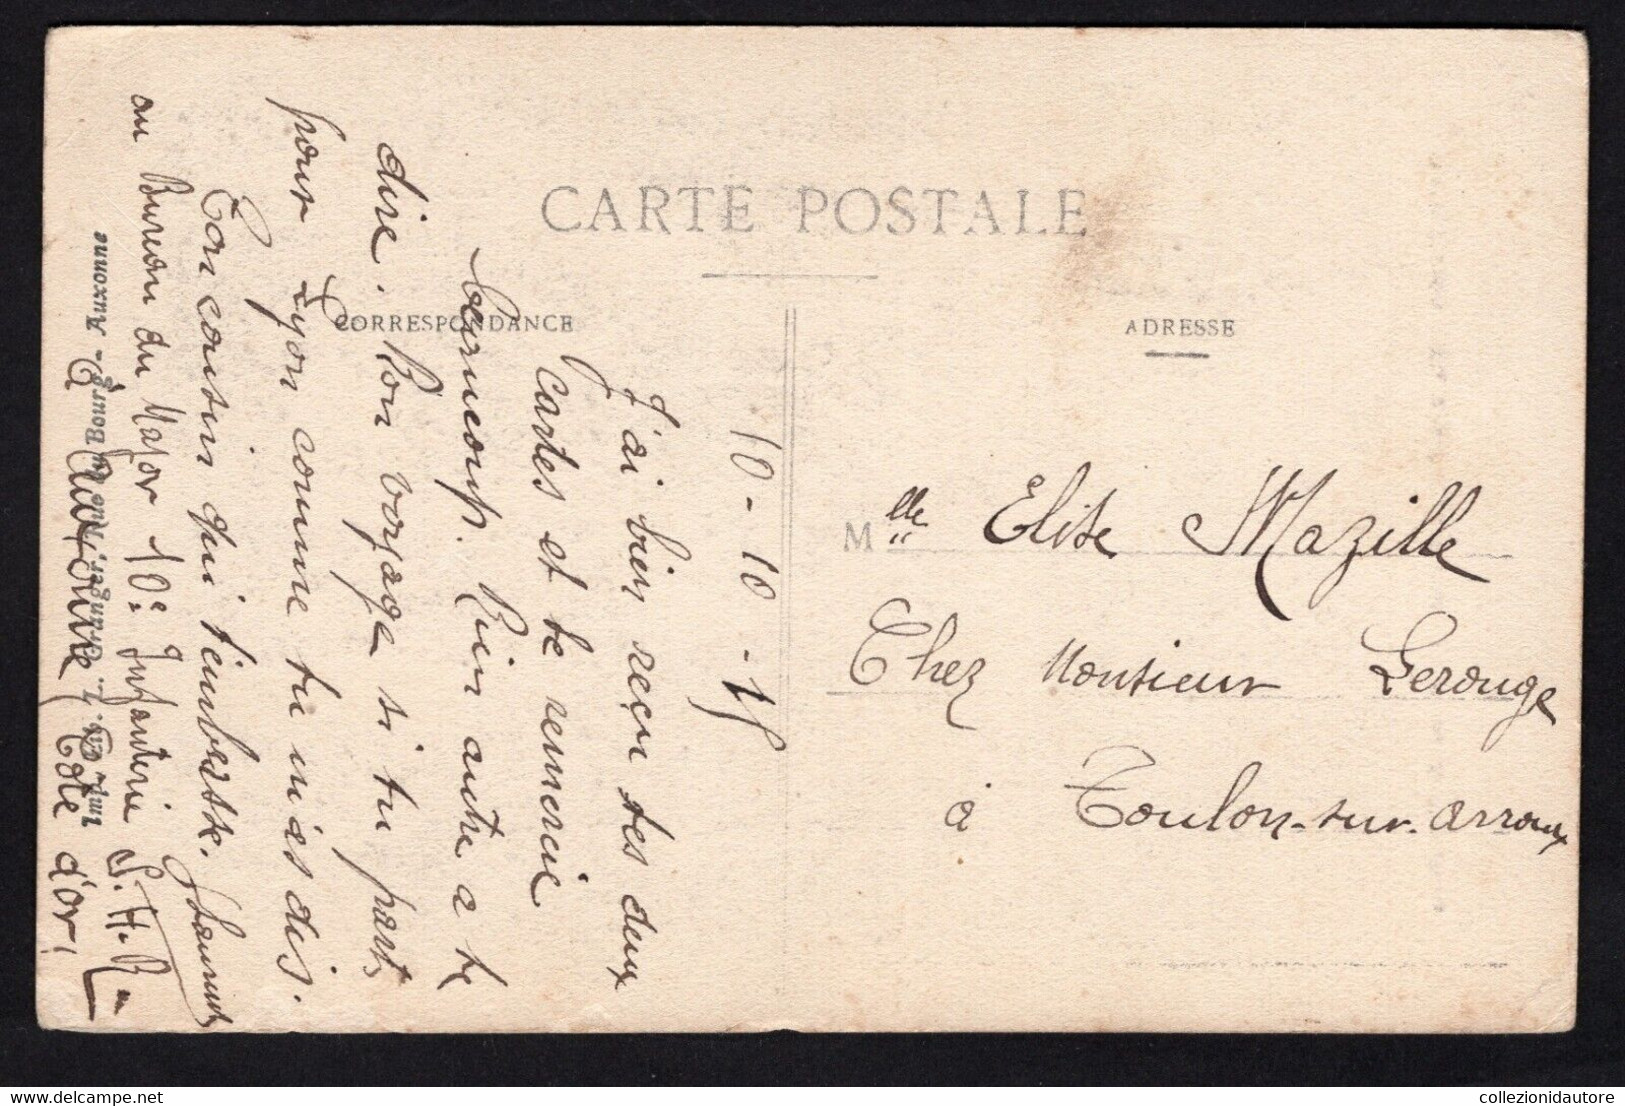 CARTE POSTALE
CORRESPONDANCE
ADRESSE
10-10-15
J'ai bien reçu tes deux
cartes et te remercie
beaucoup. Rien autre a te
dire. Bon voyage si tu parts
pour Lyon comme tu m'as dis.
Ton cousin qui t'embrasse.
au Bureau du Major 10e Infanterie S.H.R
à Auxonne Côte d'or
Rue du Bourg - Auxonne
Mlle Elise Mazille
Chez Monsieur Lerouge
à Toulon-sur-Arroux
collezionidautore